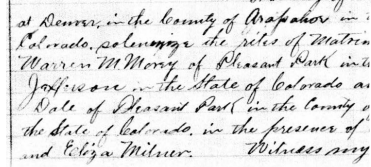 at Denver, in the County of Arapahoe in t
Colorado, solemnize the rites of Matrim
Warren M. Morey of Pleasant Park in th
Jefferson in the State of Colorado an
Dale of Pleasant Park in the County o
the State of Colorado, in the presence of
and Eliza Milner. Witness my